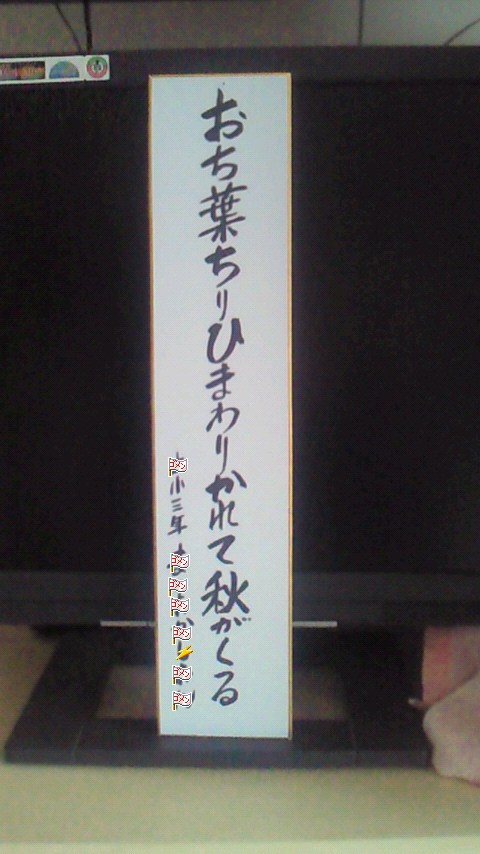 おち葉ちりひまわりかれて秋がくる
小三年